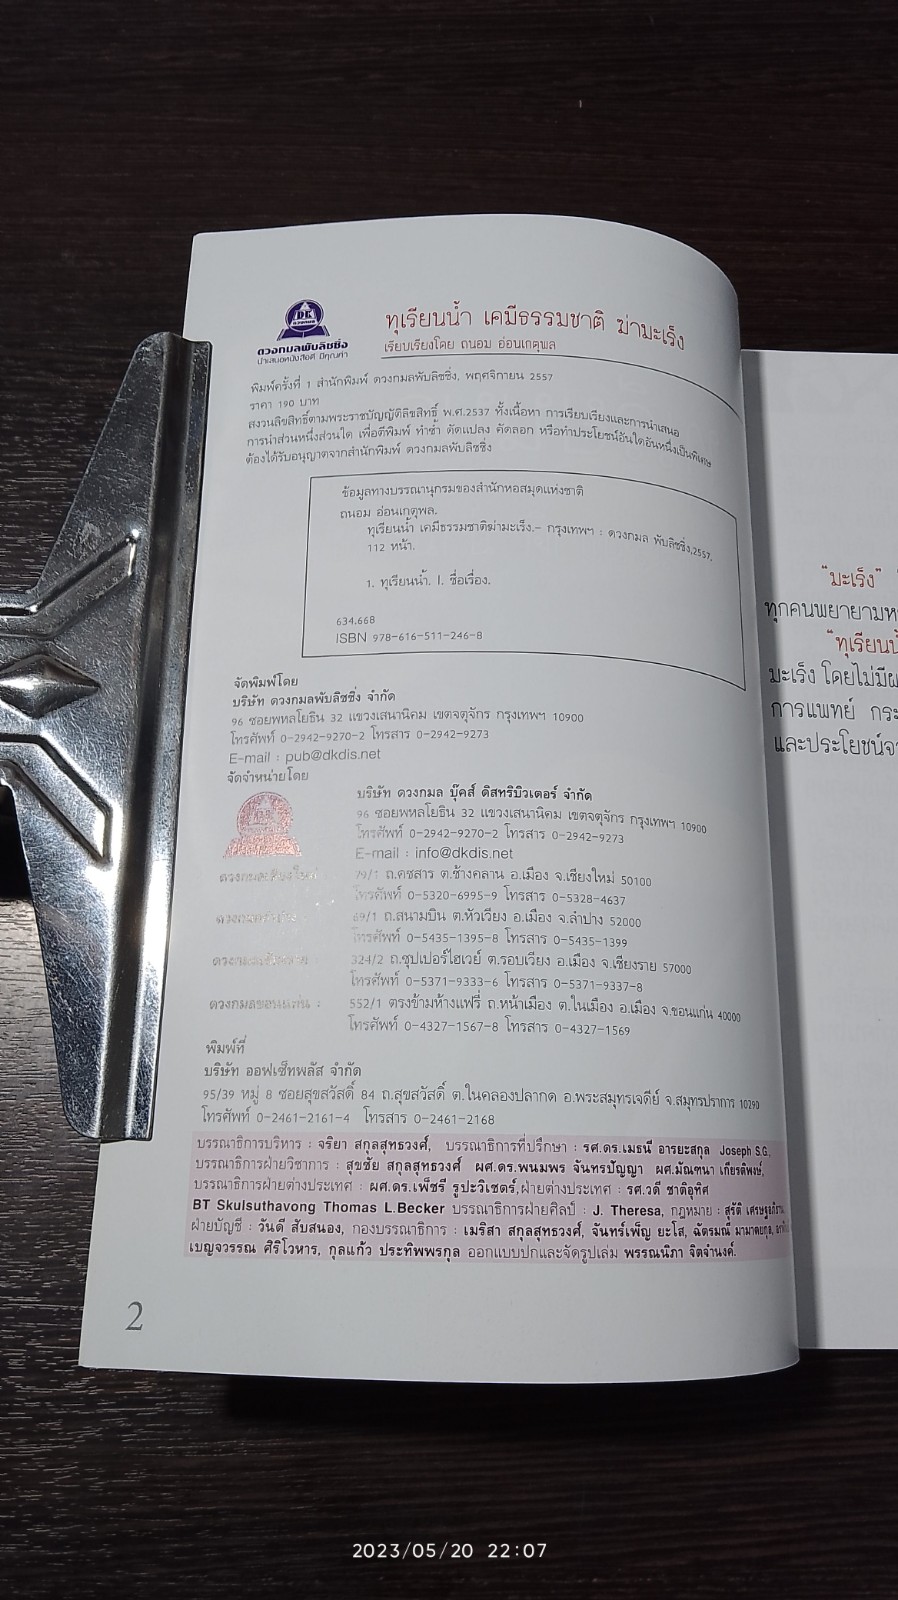 DK
ดวงกมล
ดวงกมลพับลิชชิ่ง
นำเสนอหนังสือดี มีคุณค่า
ทุเรียนน้ำ เคมีธรรมชาติ ฆ่ามะเร็ง
เรียบเรียงโดย ถนอม อ่อนเกตุพล
พิมพ์ครั้งที่ 1 สำนักพิมพ์ ดวงกมลพับลิชชิ่ง, พฤศจิกายน 2557
ราคา 190 บาท
สงวนลิขสิทธิ์ตามพระราชบัญญัติลิขสิทธิ์ พ.ศ.2537 ทั้งเนื้อหา การเรียบเรียงและการนำเสนอ
การนำส่วนหนึ่งส่วนใด เพื่อตีพิมพ์ ทำซ้ำ ดัดแปลง คัดลอก หรือทำประโยชน์อันใดอันหนึ่งเป็นพิเศษ
ต้องได้รับอนุญาตจากสำนักพิมพ์ ดวงกมลพับลิชชิ่ง
ข้อมูลทางบรรณานุกรมของสำนักหอสมุดแห่งชาติ
ถนอม อ่อนเกตุพล.
ทุเรียนน้ำ เคมีธรรมชาติฆ่ามะเร็ง.– กรุงเทพฯ : ดวงกมล พับลิชชิ่ง,2557.
112 หน้า.
1. ทุเรียนน้ำ. I. ชื่อเรื่อง.
634.668
ISBN 978-616-511-246-8
จัดพิมพ์โดย
บริษัท ดวงกมลพับลิชชิ่ง จำกัด
96 ซอยพหลโยธิน 32 แขวงเสนานิคม เขตจตุจักร กรุงเทพฯ 10900
โทรศัพท์ 0-2942-9270-2 โทรสาร 0-2942-9273
E-mail : pub@dkdis.net
จัดจำหน่ายโดย
บริษัท ดวงกมล บุ๊คส์ ดิสทริบิวเตอร์ จำกัด
96 ซอยพหลโยธิน 32 แขวงเสนานิคม เขตจตุจักร กรุงเทพฯ 10900
โทรศัพท์ 0-2942-9270-2 โทรสาร 0-2942-9273
E-mail : info@dkdis.net
ดวงกมลเชียงใหม่ 79/1 ถ.คชสาร ต.ช้างคลาน อ.เมือง จ.เชียงใหม่ 50100
โทรศัพท์ 0-5320-6995-9 โทรสาร 0-5328-4637
69/1 ถ.สนามบิน ต.หัวเวียง อ.เมือง จ.ลำปาง 52000
โทรศัพท์ 0-5435-1395-8 โทรสาร 0-5435-1399
324/2 ถ.ซุปเปอร์ไฮเวย์ ต.รอบเวียง อ.เมือง จ.เชียงราย 57000
โทรศัพท์ 0-5371-9333-6 โทรสาร 0-5371-9337-8
ดวงกมลขอนแก่น : 552/1 ตรงข้ามห้างแฟรี่ ถ.หน้าเมือง ต.ในเมือง อ.เมือง จ.ขอนแก่น 40000
โทรศัพท์ 0-4327-1567-8 โทรสาร 0-4327-1569
พิมพ์ที่
บริษัท ออฟเซ็ทพลัส จำกัด
95/39 หมู่ 8 ซอยสุขสวัสดิ์ 84 ถ.สุขสวัสดิ์ ต.ในคลองปลากด อ.พระสมุทรเจดีย์ จ.สมุทรปราการ 10290
โทรศัพท์ 0-2461-2161-4 โทรสาร 0-2461-2168
บรรณาธิการบริหาร : จริยา สกุลสุทธวงศ์, บรรณาธิการที่ปรึกษา : รศ.ดร.เมธนี อารยะสกุล Joseph S.G.,
บรรณาธิการฝ่ายวิชาการ : สุขชัย สกุลสุทธวงศ์ ผศ.ดร.พนมพร จันทรปัญญา ผศ.มัณฑนา เกียรติพงษ์,
บรรณาธิการฝ่ายต่างประเทศ : ผศ.ดร.เพ็ชรี รูปะวิเชตร์,ฝ่ายต่างประเทศ : รศ.วดี ชาติอุทิศ
BT Skulsuthavong Thomas L.Becker บรรณาธิการฝ่ายศิลป์ : J. Theresa, กฎหมาย : สุรัติ
ฝ่ายบัญชี : วันดี สืบสนอง, กองบรรณาธิการ : เมริสา สกุลสุทธวงศ์, จันทร์เพ็ญ ยะโส, ฉัตรมณี
เบญจวรรณ ศิริโวหาร, กุลแก้ว ประทิพพรกุล ออกแบบปกและจัดรูปเล่ม พรรณนิภา จิตจำนงค์.
2
"มะเร็ง"
ทุกคนพยายามห
"ทุเรียนน้
มะเร็ง โดยไม่มีผ
การแพทย์ กระ
และประโยชน์จา
2023/05/20 22:07